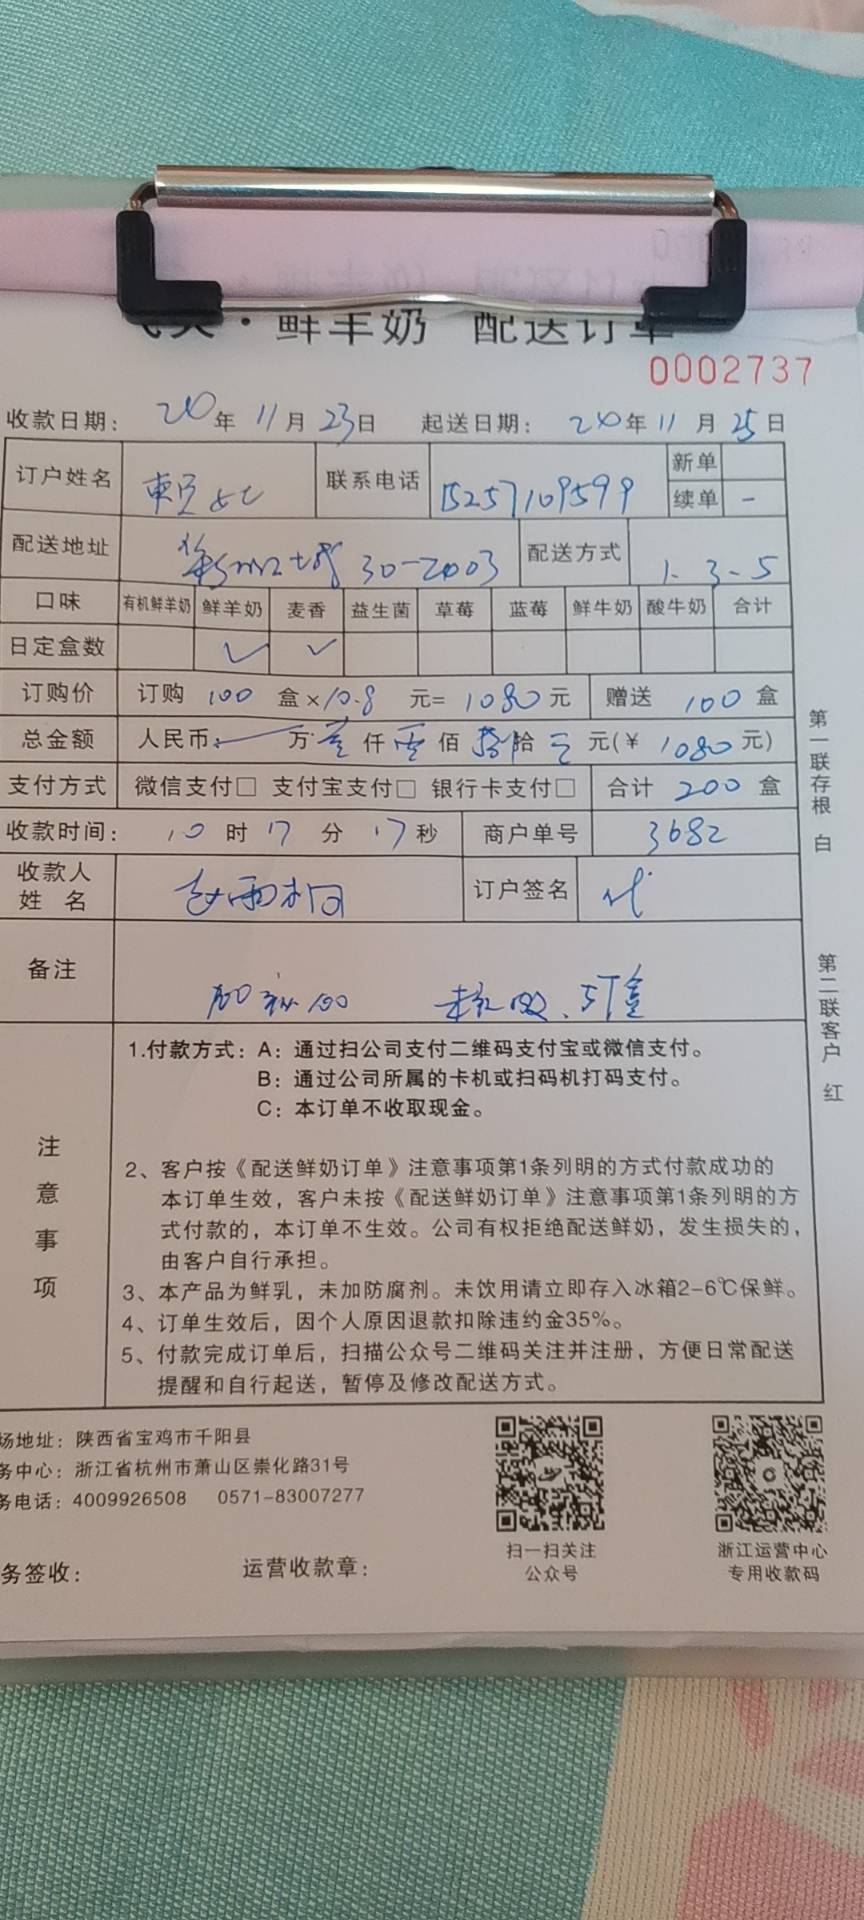 ·鲜羊奶 配送订单
0002737
收款日期： 20年11月23日 起送日期： 20年11月25日
订户姓名 联系电话 15257109599 新单
续单 -
配送地址 30-2003 配送方式 1. 3-5
口味 有机鲜羊奶 鲜羊奶 麦香 益生菌 草莓 蓝莓 鲜牛奶 酸牛奶 合计
日定盒数 ✓ ✓
订购价 订购 100 盒×10.8 元= 1080元 赠送 100 盒
总金额 人民币： 万 壹 仟 零 佰 捌 拾 元(¥ 1080元)
支付方式 微信支付□ 支付宝支付□ 银行卡支付□ 合计 200 盒
收款时间： 10 时 17 分 17秒 商户单号 3682
收款人 订户签名
姓 名 赵雨桐
备注
注意事项
1.付款方式：A：通过扫公司支付二维码支付宝或微信支付。
B：通过公司所属的卡机或扫码机打码支付。
C：本订单不收取现金。
2、客户按《配送鲜奶订单》注意事项第1条列明的方式付款成功的
本订单生效，客户未按《配送鲜奶订单》注意事项第1条列明的方
式付款的，本订单不生效。公司有权拒绝配送鲜奶，发生损失的，
由客户自行承担。
3、本产品为鲜乳，未加防腐剂。未饮用请立即存入冰箱2-6℃保鲜。
4、订单生效后，因个人原因退款扣除违约金35%。
5、付款完成订单后，扫描公众号二维码关注并注册，方便日常配送
提醒和自行起送，暂停及修改配送方式。
第一联存根 白
第二联客户 红
场地址：陕西省宝鸡市千阳县
务中心：浙江省杭州市萧山区崇化路31号
务电话：4009926508 0571-83007277
扫一扫关注
公众号
浙江运营中心
专用收款码
务签收： 运营收款章：